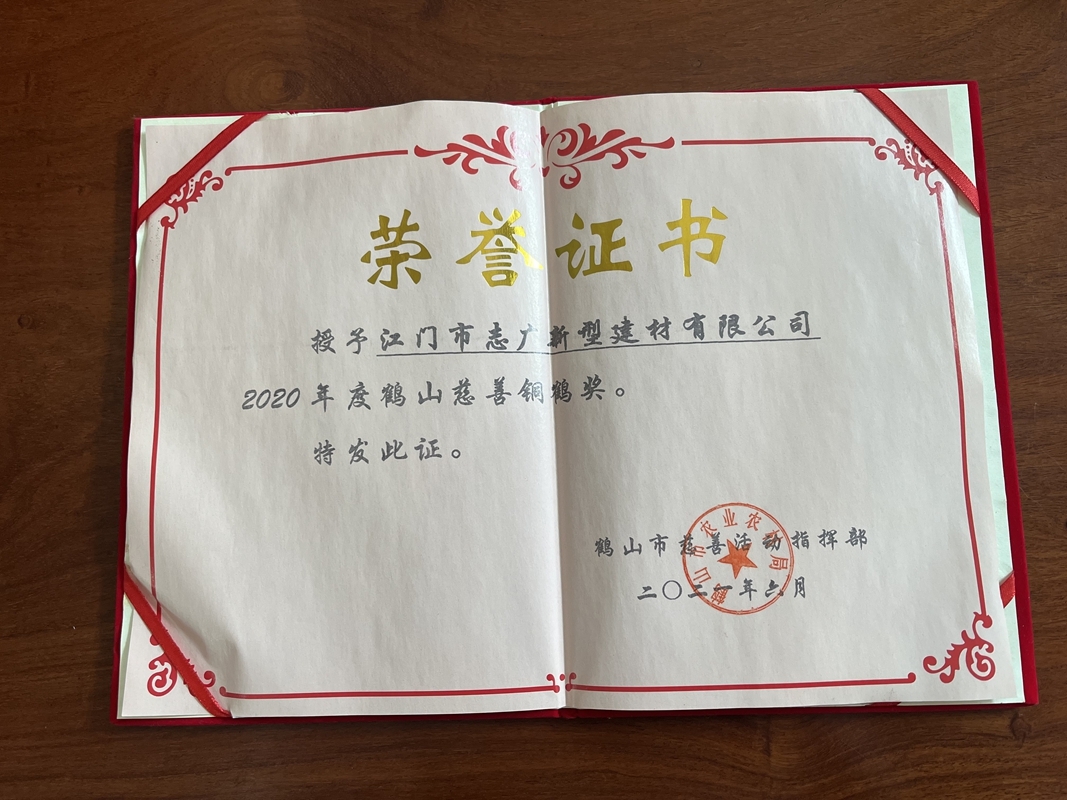 荣誉证书
授予江门市志广新型建材有限公司
2020年度鹤山慈善铜鹤奖。
特发此证。
鹤山市慈善活动指挥部
二〇二一年六月
鹤山市农业农村局